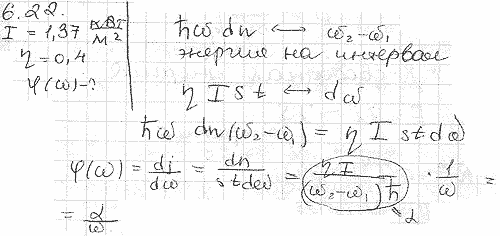 6.22.
I = 1,37 кВт/м²
η = 0,4
φ(ω) - ?
ħω dn ↔ ω₂ - ω₁
энергия на интервал
η I s t ↔ dω
ħω dn(ω₂-ω₁) = η I s t dω
φ(ω) = dj/dω = dn/(s t dω) = ηI/((ω₂-ω₁)ħ) · 1/ω =
= α/ω
α